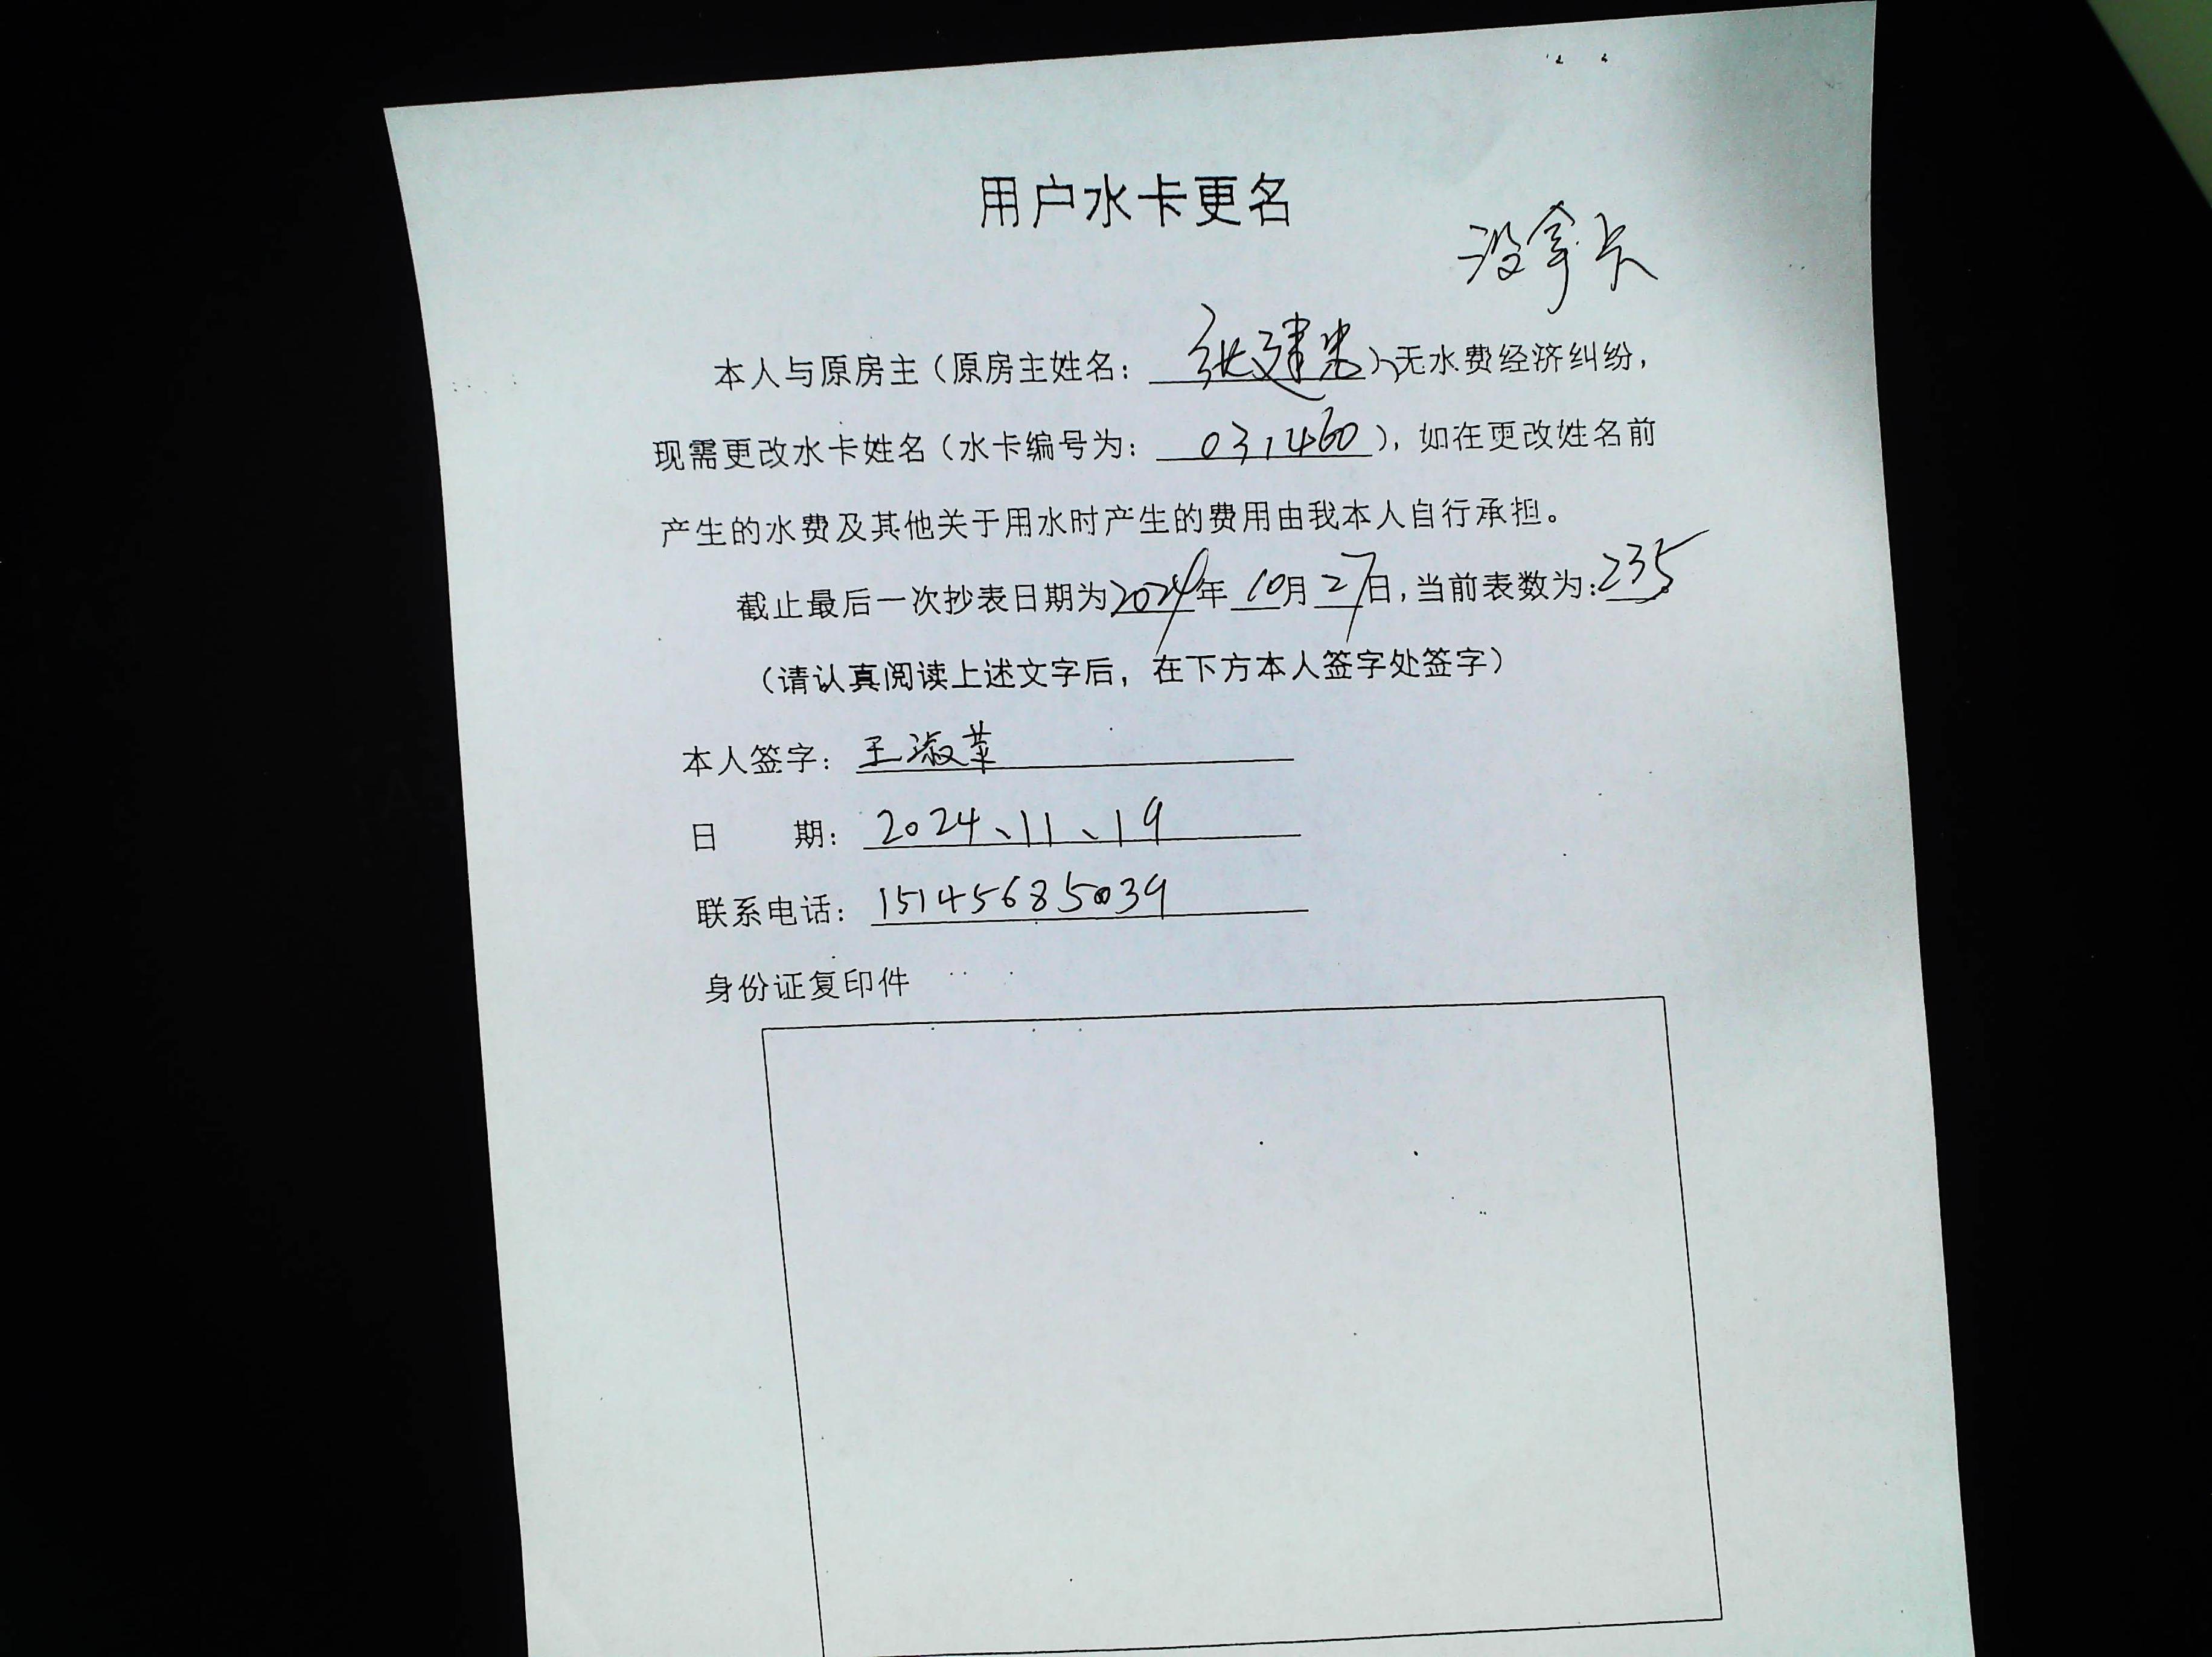 用户水卡更名
没拿卡
本人与原房主（原房主姓名：张建忠）无水费经济纠纷，
现需更改水卡姓名（水卡编号为：031460），如在更改姓名前
产生的水费及其他关于用水时产生的费用由我本人自行承担。
截止最后一次抄表日期为2024年10月27日，当前表数为：235。
（请认真阅读上述文字后，在下方本人签字处签字）
本人签字：王淑苹
日 期：2024、11、19
联系电话：15145685039
身份证复印件